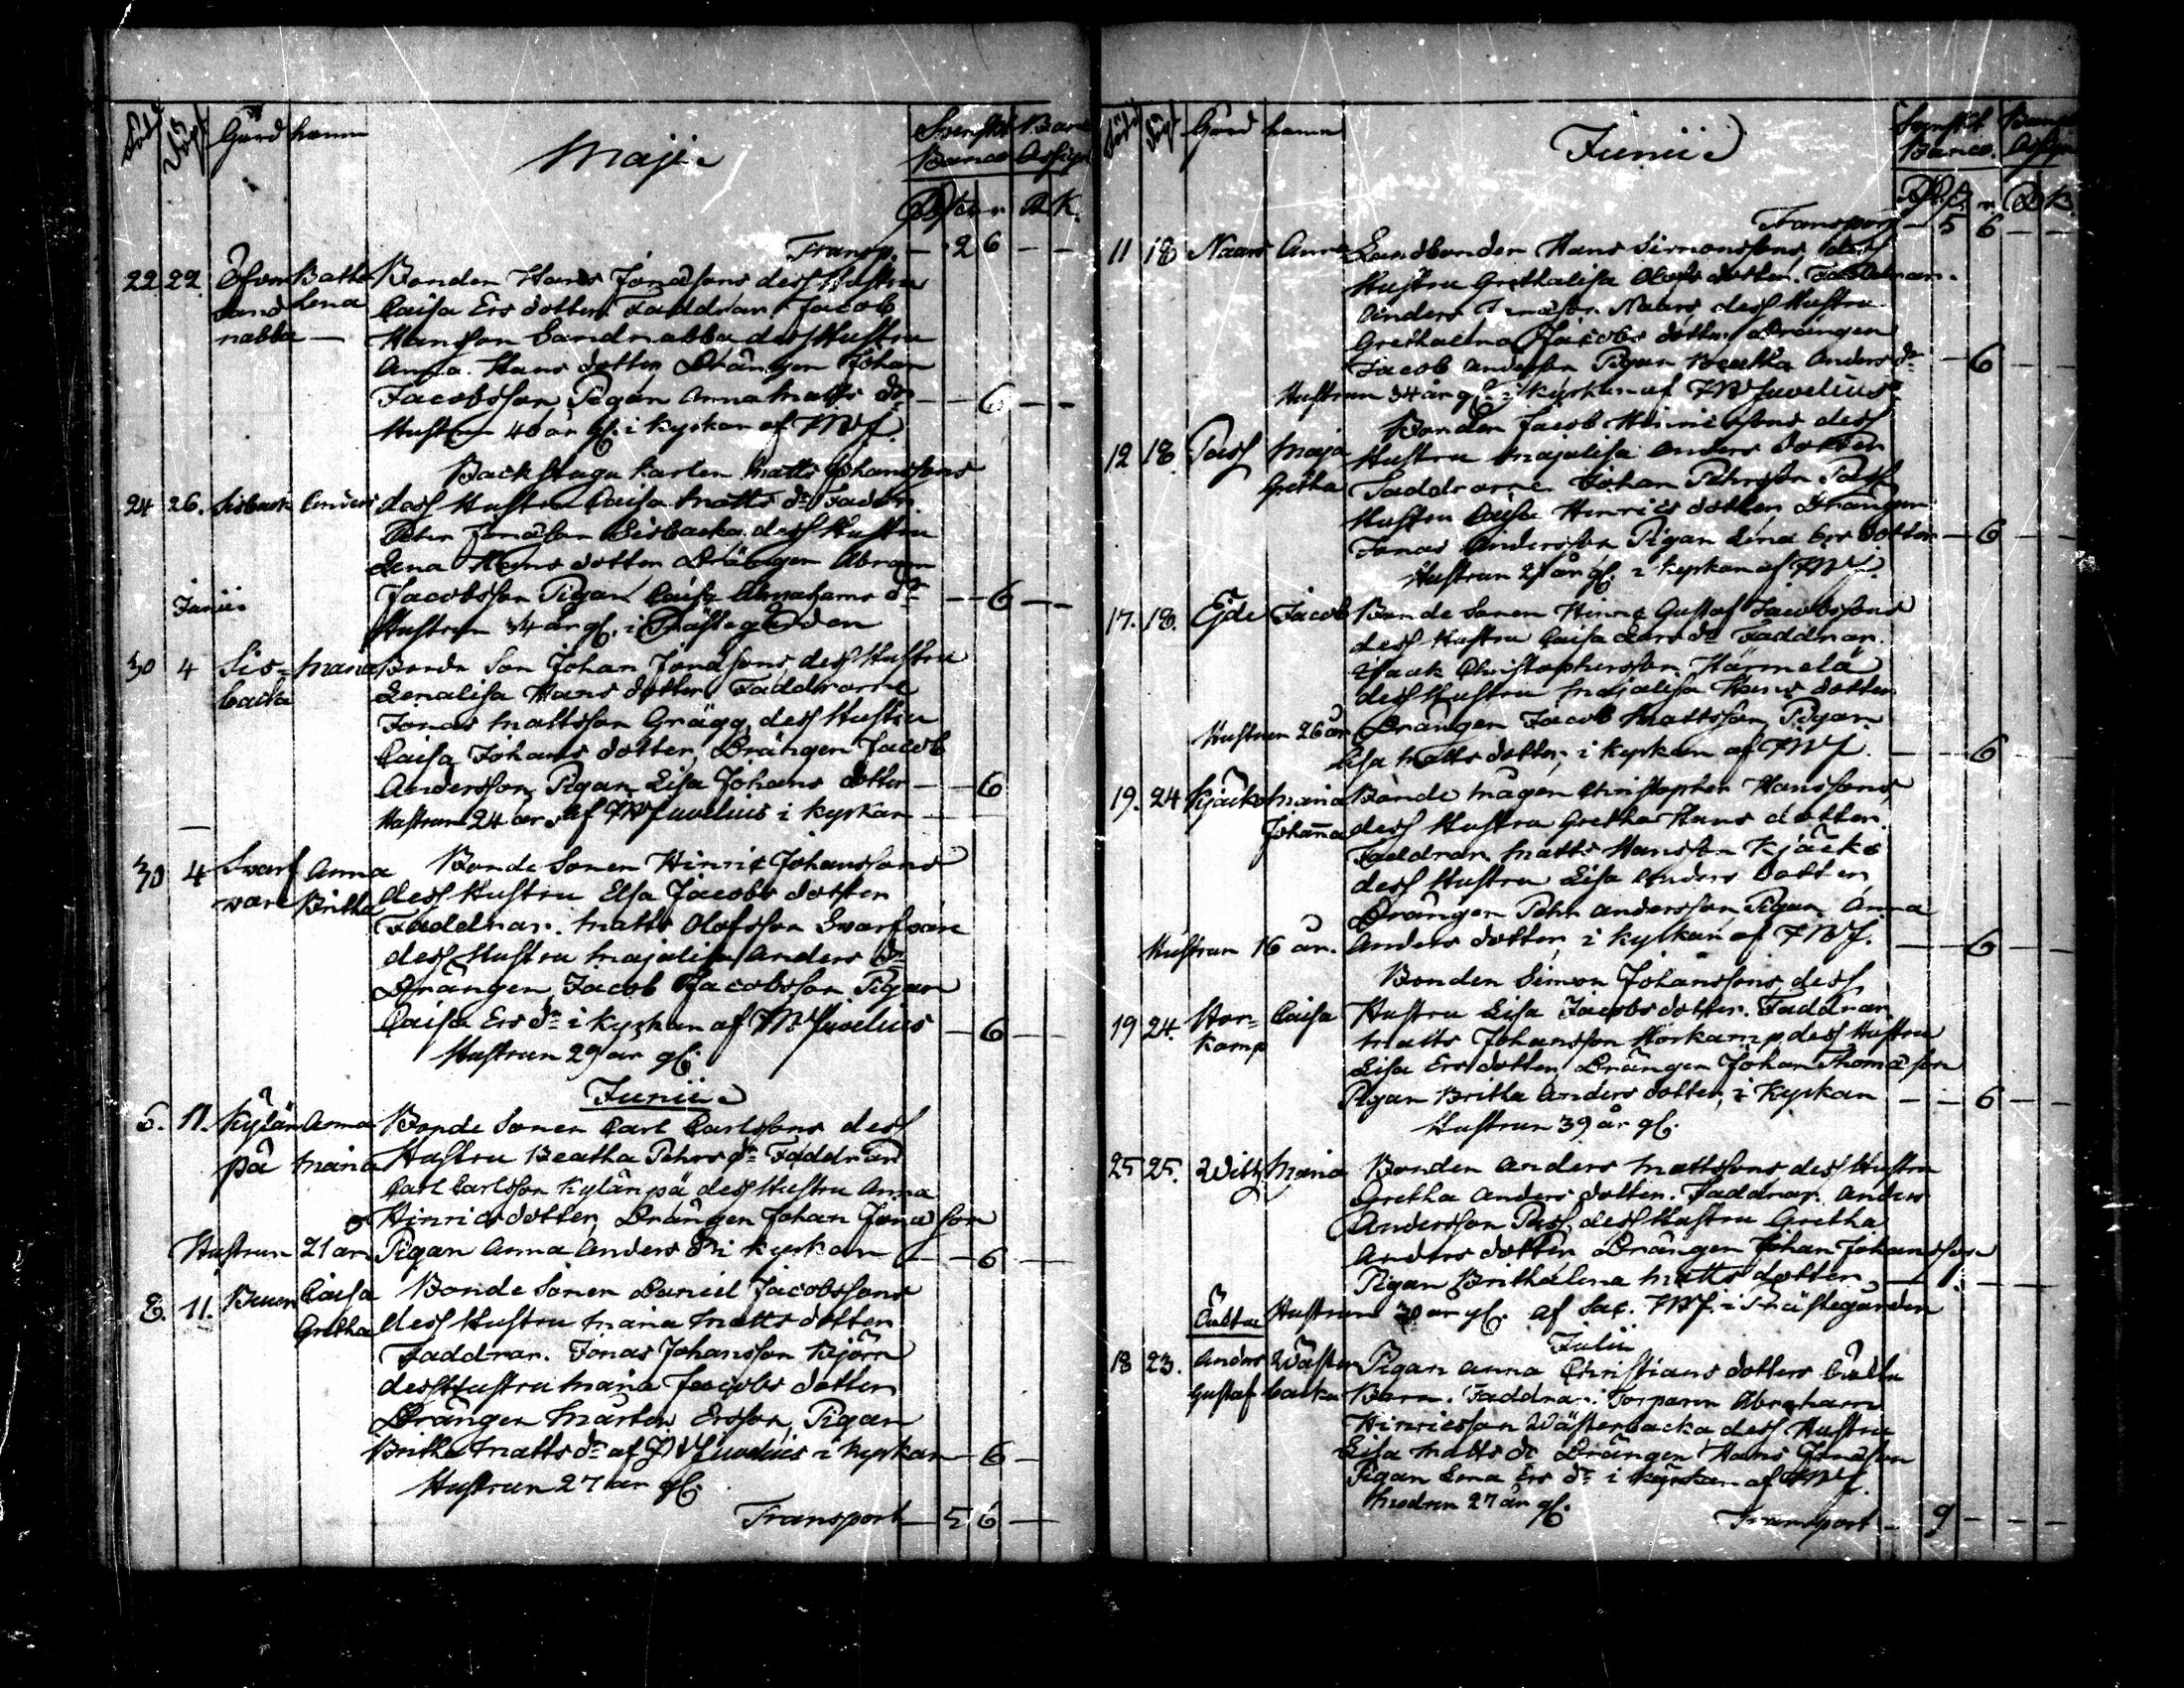 Född Döpt Gård hamn
Maji
Svenskt Banco
Banco Assign
R K.
Transp. — 2 6 — —
22 22. Öfver Batha Bonden Hans Jonassons dess Hustru
Sand Lena Caisa Ers dotter Faddrar Jacob
nabba — Hansson Sandnabba dess Hustru
Anna Hans dotter Drängen Johan
Jacobsson Pigan Anna Matts dr — — 6 — —
Hustrun 40 år gl. i kyrkan af JWJ.
Backstugu karlen Matts Johanssons
24 26. Sisback Anders dess Hustru Caisa Matts dr Faddr.
Peter Jonasson Sisbacka dess Hustru
Lena Hans dotter Drängen Abram
Junii Jacobsson Pigan Caisa Abrahams dr — — 6 — —
Hustrun 34 år gl. i Prästegården
30 4 Sis= Maria Bonde Son Johan Jonassons dess Hustru
backa Lenalisa Hans dotter Faddrarne
Jonas Mattsson Grägg dess Hustru
Caisa Johans dotter, Drängen Jacob
Andersson, Pigan Lisa Johans dotter — — 6
Hustrun 24 år, af JWJuvelius i kyrkan —
30 4 Svarf Anna Bonde Sonen Hinric Johanssons
var Britha dess Hustru Elsa Jacobs dotter
Faddrar. Matts Olofsson Svarfvar
dess Hustru Majalisa Anders dr
Drängen Jacob Jacobsson Pigan
Caisa Ers dr i kyrkan af JWJuvelius — 6 — —
Hustrun 29 år gl.
Junii
6. 11. Kylän Anna Bonde Sonen Carl Carlssons dess
pä Maria Hustru Beatha Pehrs dr Faddrar
Carl Carlsson Kylänpä dess Hustru Anna
Hinrics dotter, Drängen Johan Jonasson
Hustrun 21 år. Pigan Anna Anders dr i kyrkan — — 6 —
8. 11. Buen Caisa Bonde Sonen Daniel Jacobssons
Gretha dess Hustru Maria Matts dotter
Faddrar. Jonas Johansson Kjörn
dess Hustru Maria Jacobs dotter
Drängen Mårten Ersson, Pigan
Britha Matts dr af JWJuvelius i kyrkan — 6 —
Hustrun 27 år gl.
Transport — 5 6 —
Född Döpt Gård hamn
Junii
Svenskt Banco
Banco. Assign
Transport — 5 6 — —
11 18 Naars Anna Landbonden Hans Simonssons, dess
Hustru Grethalisa Olofs dotter. Faddrar.
Anders Jonasson Naars, dess Hustru
Grethalena Jacobs dotter, Drängen
Jacob Andersson Pigan Beatha Anders dr — 6 — —
Hustrun 34 år gl. i kyrkan af JWJuvelius
Bonden Jacob Hinricssons dess
12 18. Pass Maja Hustru Majalisa Anders dotter
Gretha Faddrarne Johan Pehrsson Pass
Hustru Caisa Hinrics dotter, Drängen
Jonas Andersson Pigan Lena Ers dotter — 6 — —
Hustrun 27 år gl. i kyrkan af JWJ.
17. 18. Ejde Jacob Bonde Sonen Hinric Gustaf Jacobssons
dess Hustru Caisa Lars dr Faddrar.
Isaak Christophersson Härmelä
dess Hustru Majalisa Hans dotter
Hustrun 26 år Drängen Jacob Mattsson, Pigan
Lisa Matts dotter, i kyrkan af JWJ. — — 6 — —
19. 24 Kjäcks Maria Bonde Mågen Christopher Hanssons,
Johanna dess Hustru Gretha Hans dotter.
Faddrar. Matts Hansson Kjäcks
dess Hustru Lisa Anders dotter,
Drängen Pehr Andersson Pigan Anna
Hustrun 16 år. Anders dotter, i kyrkan af JWJ. — — 6 — —
Bonden Simon Johanssons dess
19 24. Stor= Caisa Hustru Lisa Jacobs dotter. Faddrar.
kamp Matts Johansson Storkamp dess Hustru
Lisa Ers dotter, Drängen Johan Thomasson
Pigan Britha Anders dotter, i kyrkan — — 6 — —
Hustrun 39 år gl.
25 25. Witz Maria Bonden Anders Mattssons dess Hustru
Gretha Anders dotter. Faddrar. Anders
Andersson Pass, dess Hustru Gretha
Anders dotter Drängen Johan Johansson
Pigan Brithalena Matts dotter, — 1. — — —
Oächta Hustrun 30 år gl. af Sac. JWJ. i Prästegården
Julii
18 23. Anders Wäster Pigan Anna Christians dotters Oächta
Gustaf backa Barn. Faddrar: Torparn Abraham
Hinricsson Wästerbacka dess Hustru
Lisa Matts dr Drängen Hans Jonasson
Pigan Lena Ers dr i kyrkan af JWJ.
Modren 27 år gl.
Transport — 9 — — —